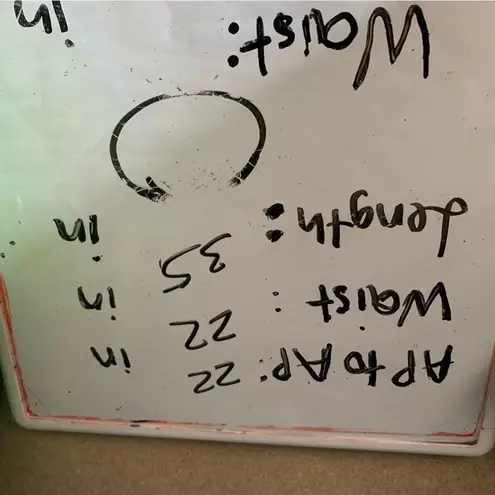 AP to AP: 22 in
Waist: 22 in
Length: 35 in
Waist: in